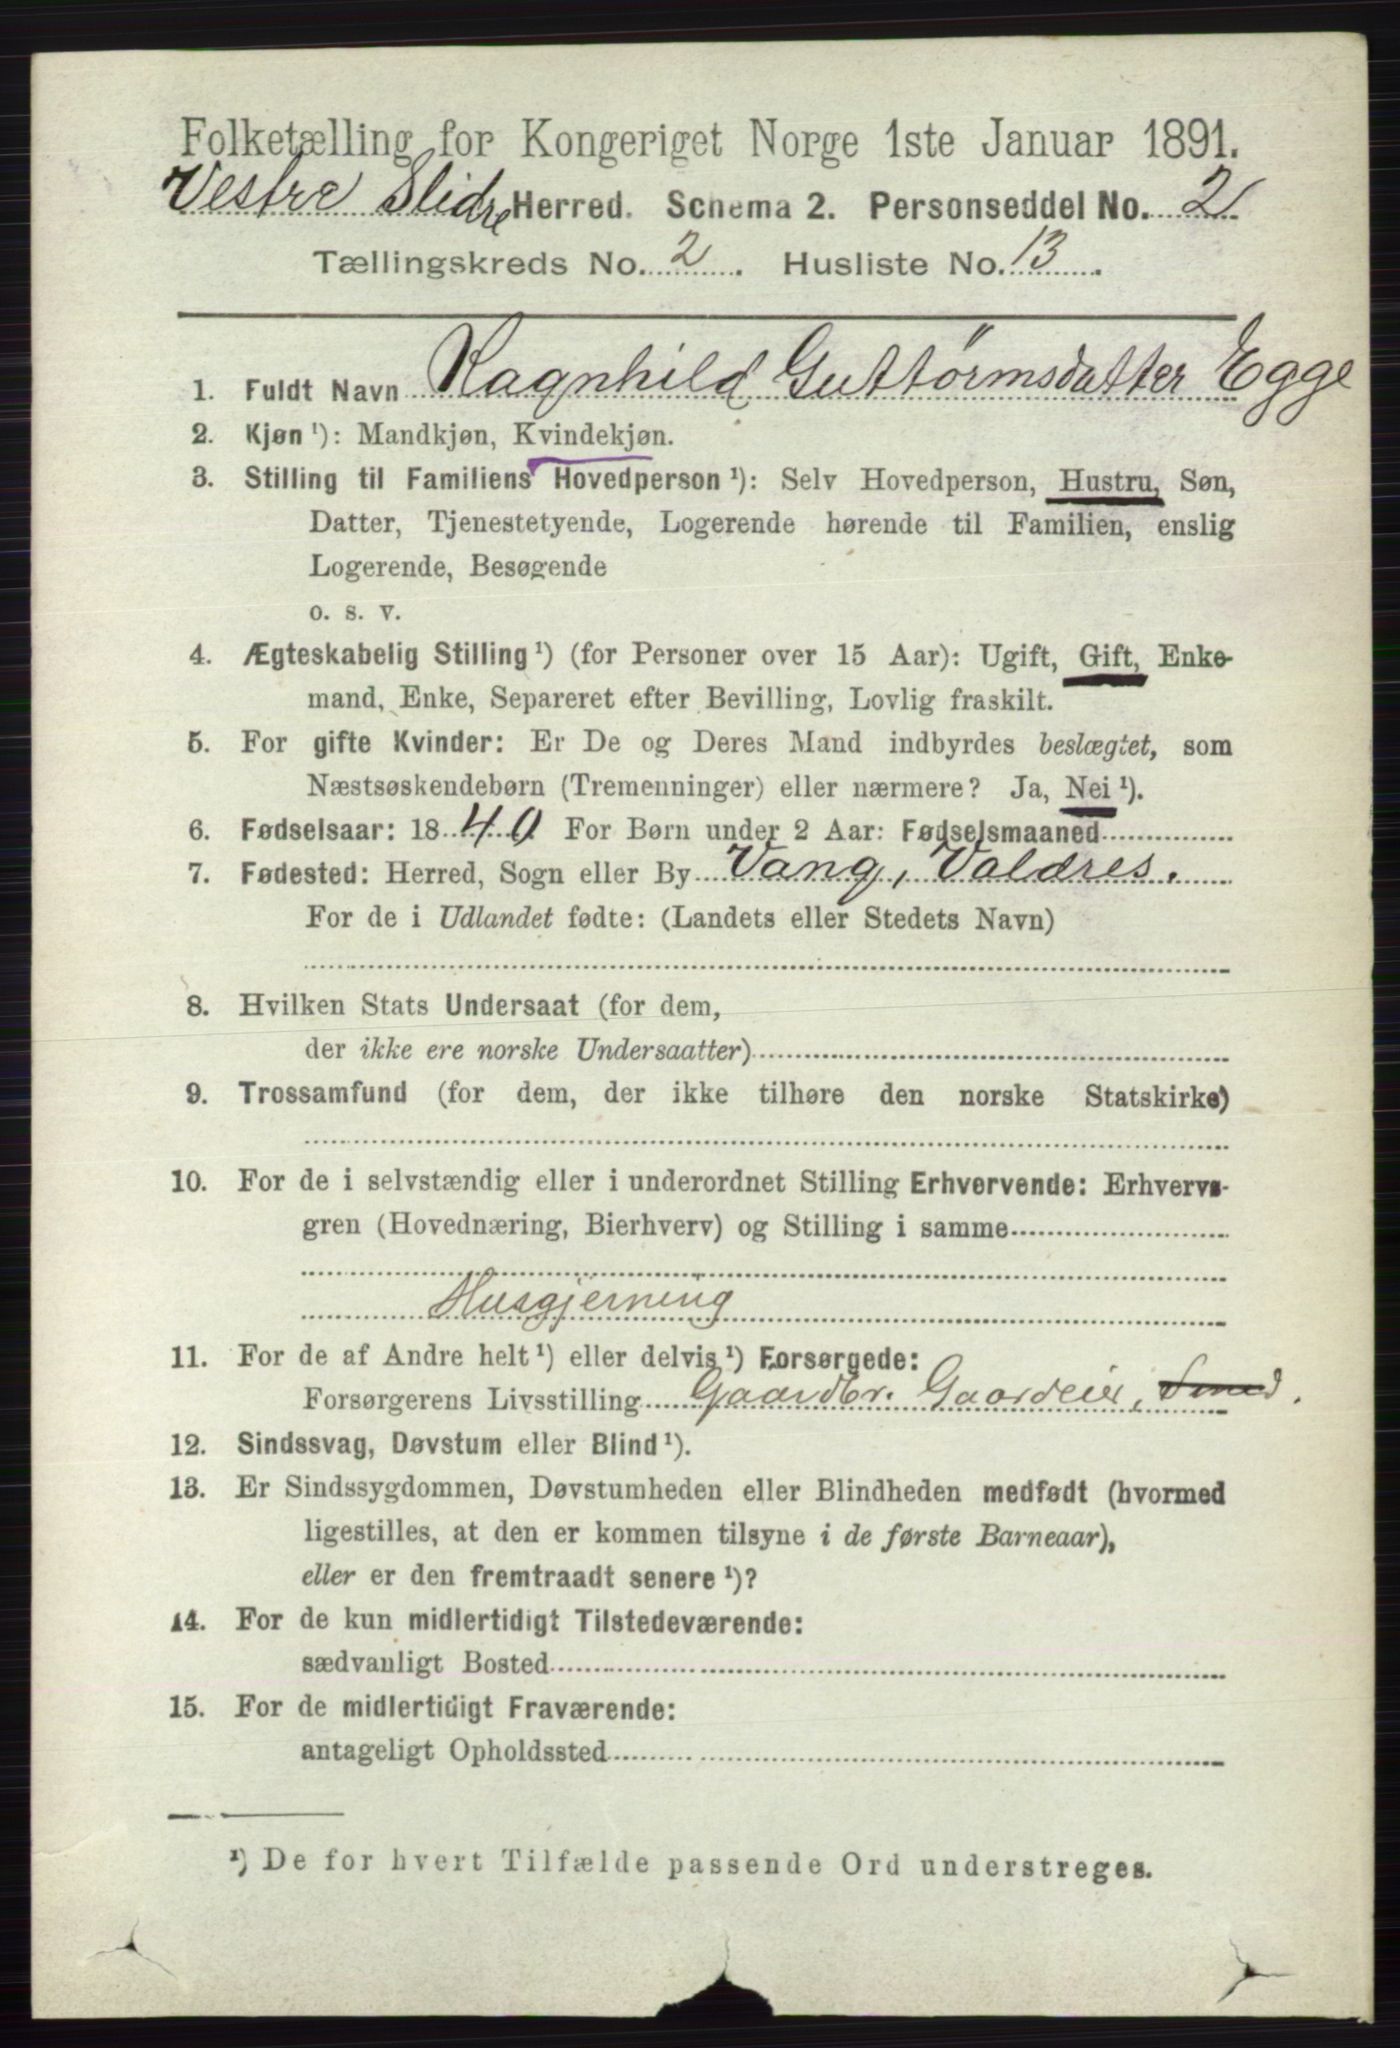 Folketælling for Kongeriget Norge 1ste Januar 1891.
Vestre Slidre Herred. Schema 2. Personseddel No. 2
Tællingskreds No. 2. Husliste No. 13.
1. Fuldt Navn Ragnhild Guttormsdatter Egge
2. Kjøn ¹): Mandkjøn, Kvindekjøn.
3. Stilling til Familiens Hovedperson ¹): Selv Hovedperson, Hustru, Søn,
Datter, Tjenestetyende, Logerende hørende til Familien, enslig
Logerende, Besøgende
o. s. v.
4. Ægteskabelig Stilling ¹) (for Personer over 15 Aar): Ugift, Gift, Enke-
mand, Enke, Separeret efter Bevilling, Lovlig fraskilt.
5. For gifte Kvinder: Er De og Deres Mand indbyrdes beslægtet, som
Næstsøskendebørn (Tremenninger) eller nærmere? Ja, Nei ¹).
6. Fødselsaar: 1840 For Børn under 2 Aar: Fødselsmaaned
7. Fødested: Herred, Sogn eller By Vang, Valdres.
For de i Udlandet fødte: (Landets eller Stedets Navn)
8. Hvilken Stats Undersaat (for dem,
der ikke ere norske Undersaatter)
9. Trossamfund (for dem, der ikke tilhøre den norske Statskirke)
10. For de i selvstændig eller i underordnet Stilling Erhvervende: Erhvervs-
gren (Hovednæring, Bierhverv) og Stilling i samme
Husgjerning
11. For de af Andre helt ¹) eller delvis ¹) Forsørgede:
Forsørgerens Livsstilling Gaardbr. Gaardeier, Smed.
12. Sindssvag, Døvstum eller Blind ¹).
13. Er Sindssygdommen, Døvstumheden eller Blindheden medfødt (hvormed
ligestilles, at den er kommen tilsyne i de første Barneaar),
eller er den fremtraadt senere ¹)?
14. For de kun midlertidigt Tilstedeværende:
sædvanligt Bosted
15. For de midlertidigt Fraværende:
antageligt Opholdssted
¹) De for hvert Tilfælde passende Ord understreges.